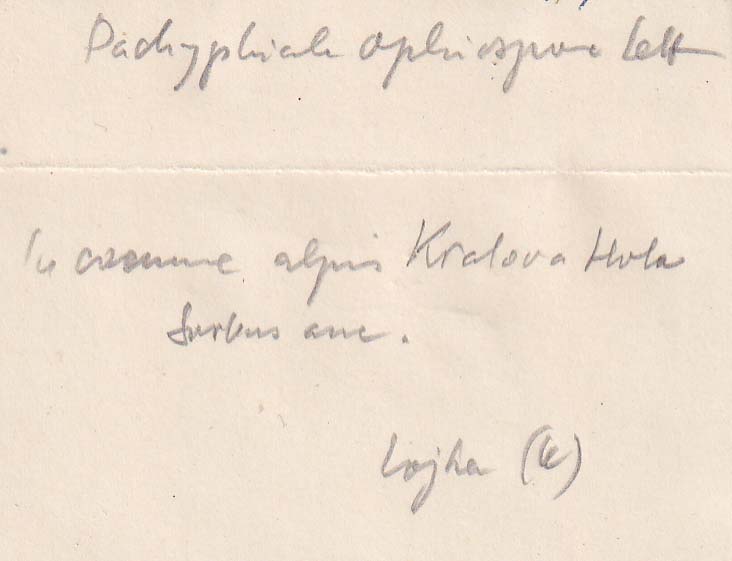 Pachyphiale ophiospora Lett
In cacumine alpis Kralova Hola
Sorbus auc.
Lojka